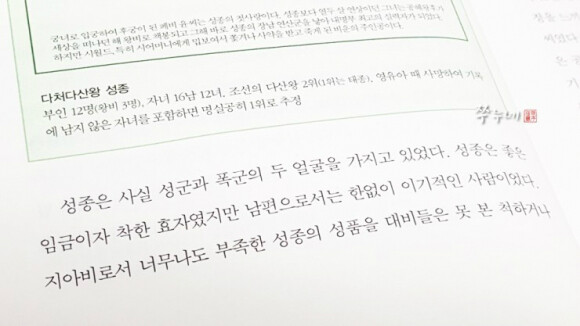 궁녀로 입궁하여 후궁이 된 폐비 윤씨는 성종의 첫사랑이다. 성종보다 열두 살 연상이던 그녀는 공혜왕후가
세상을 떠나던 해 왕비로 책봉되고 그해 바로 성종의 장남 연산군을 낳아 내명부 최고의 실력자가 되었다.
하지만 시월드, 특히 시어머니에게 밉보여서 쫓겨나 사약을 받고 죽게 된 비운의 주인공이다.
다처다산왕 성종
부인 12명(왕비 3명), 자녀 16남 12녀, 조선의 다산왕 2위(1위는 태종), 영유아 때 사망하여 기록
에 남지 않은 자녀를 포함하면 명실공히 1위로 추정
쭈누메
성종은 사실 성군과 폭군의 두 얼굴을 가지고 있었다. 성종은 좋은
임금이자 착한 효자였지만 남편으로서는 한없이 이기적인 사람이었다.
지아비로서 너무나도 부족한 성종의 성품을 대비들은 못 본 척하거나